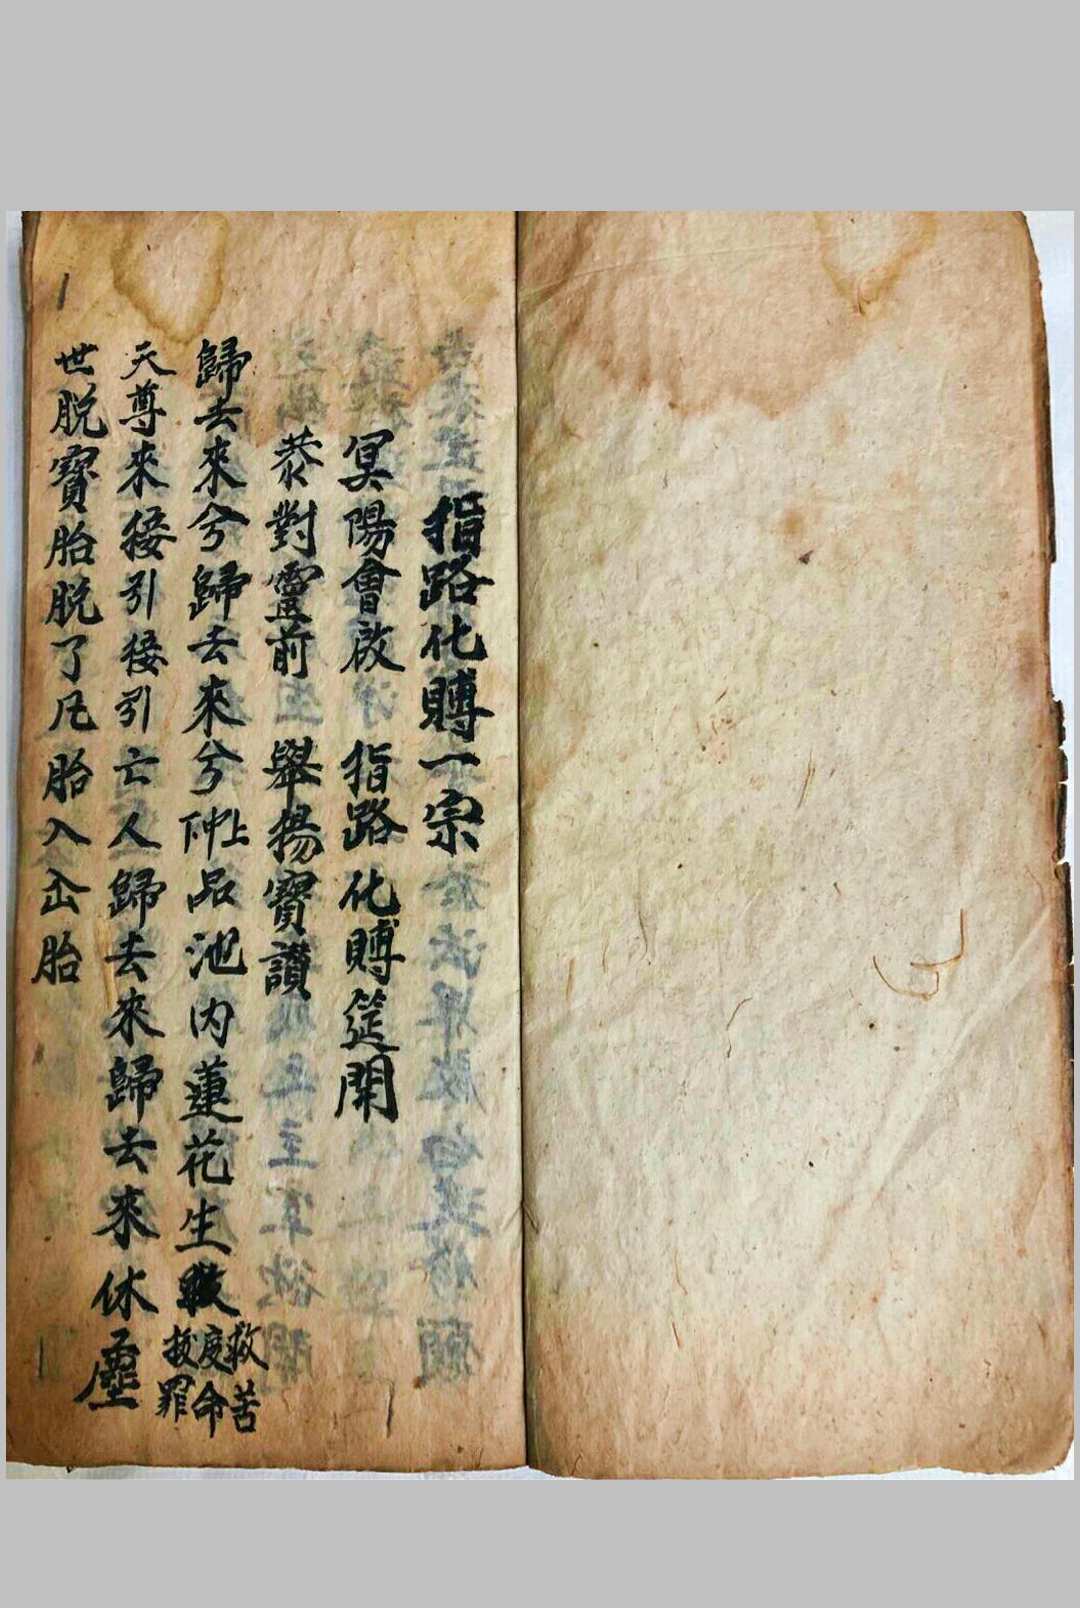 指路化賻一宗
冥陽會啟 指路化賻筵開
恭對靈前 舉揚寶讚
歸去來兮歸去來兮上中下品池内蓮花生救苦度命拔罪
天尊來接引接引亡人歸去來歸去來休
世脱寶胎脱了凡胎入仚胎